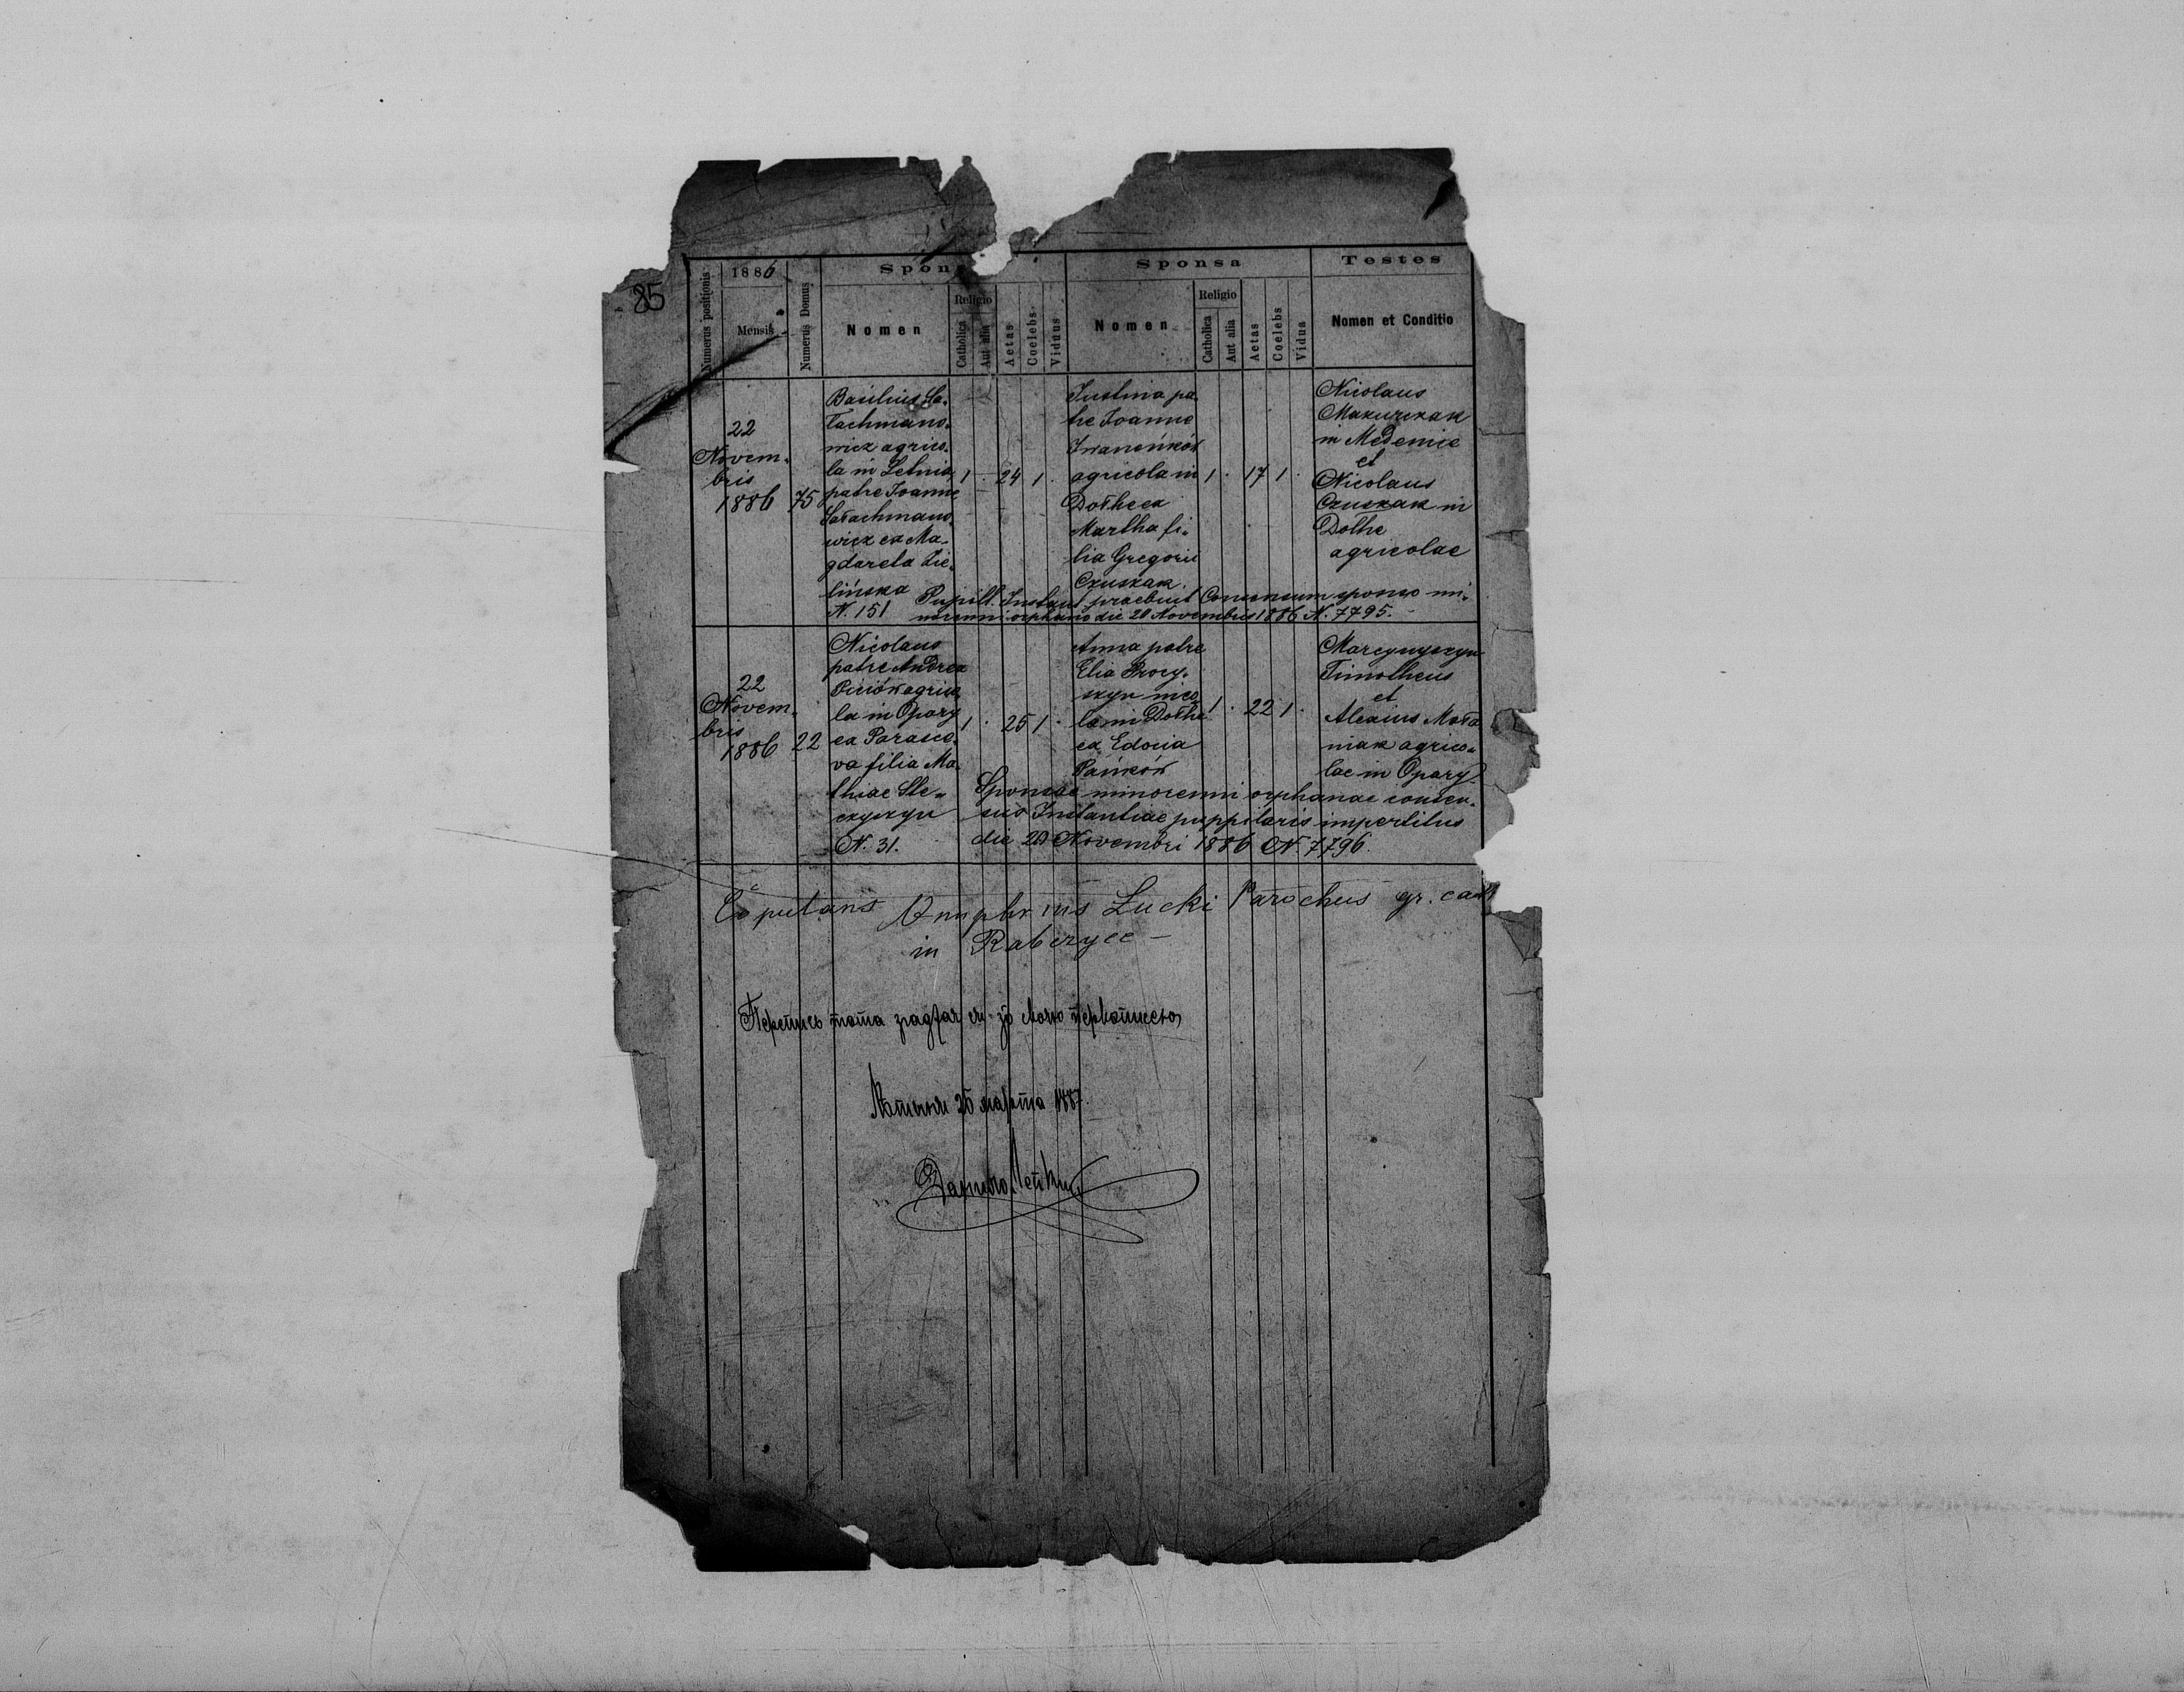 85
1886
Mensis
Numerus positionis
Numerus Domus
Spon
Nomen
Religio
Catholica
Aut alia
Aetas
Coelebs
Viduus
Sponsa
Nomen
Religio
Catholica
Aut alia
Aetas
Coelebs
Vidua
Testes
Nomen et Conditio
22
Novem-
bris
1886
75
Basilius Ła-
łachmano-
wicz agrico-
la in Letnia
patre Joanne
Łałachmano-
wicz ex Ma-
gdarela Zie-
lińska
N. 151
1 · 24 1 ·
Justina pa-
tre Joanne
Iwaneńków
agricola in
Dołhe ex
Martha fi-
lia Gregorii
Czuszak
1 · 17 1 ·
Nicolaus
Makurzak
in Medenice
et
Nicolaus
Czuszak in
Dołhe
agricolae
Pupill. Instant. praebuit Consensum sponso mi-
norenni orphano die 20 Novembris 1886 N. 7795.
22
Novem-
bris
1886
22
Nicolaus
patre Andrea
agrico-
la in Opary
ex Parasce-
va filia Ma-
thiae Ste-
cyszyn
N. 31.
1 · 25 1 ·
Anna patre
Elia Procy-
szyn
la in Dołhe
ex Edocia
Pańków
1 · 22 1 ·
Marcynyszyn
Timotheus
et
Alexius Mała
niak agrico-
lae in Opary
Sponsae minorenni orphanae consen-
sus Instantiae puppilaris impertitus
die 20 Novembri 1886 N. 7796.
Copulans Onuphrius Łucki Parochus gr. cath
in Rabczyce –
Перепись тота згаджає ся зо свою первописею
25 марта 1887.
Данило